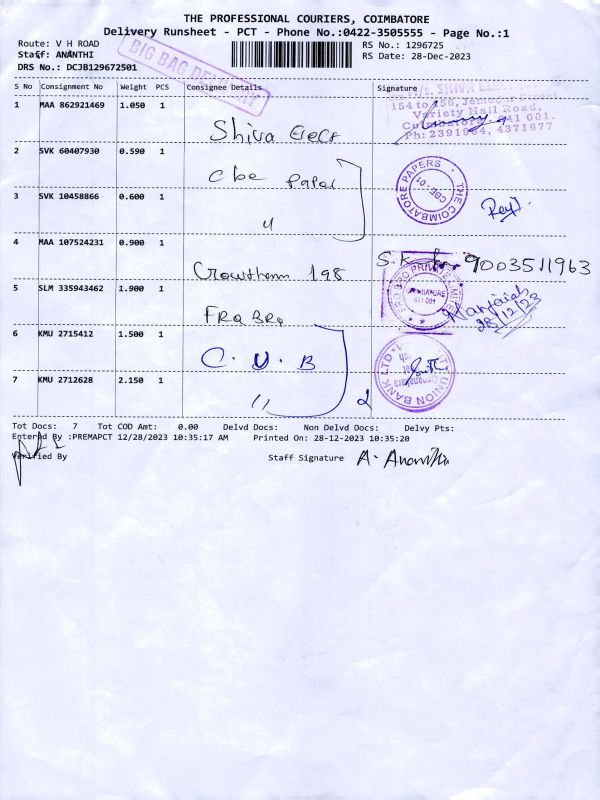 THE PROFESSIONAL COURIERS, COIMBATORE
Delivery Runsheet - PCT - Phone No.:0422-3505555 - Page No.:1
Route: V H ROAD
RS No.: 1296725
Staff: ANANTHI
RS Date: 28-Dec-2023
DRS No.: DCJB129672501
BIG BAG DELIVERY
S No Consignment No Weight PCS Consignee Details Signature
1 MAA 862921469 1.050 1 Shiva Elect
154 to 156,
Variety Hall Road,
Coimbatore - 641 001.
Ph: 2391964, 4371677
2 SVK 60407930 0.590 1 Cbe Paper
THE COIMBATORE PAPERS
CBE - 01
3 SVK 10458866 0.600 1 "
4 MAA 107524231 0.900 1 Growtherm 198
S.K 9003511963
5 SLM 335943462 1.900 1 FRA BRO
COIMBATORE
641 001
28/12/23
6 KMU 2715412 1.500 1 C.U.B
UNION BANK LTD
7 KMU 2712628 2.150 1 " 2
Tot Docs: 7 Tot COD Amt: 0.00 Delvd Docs: Non Delvd Docs: Delvy Pts:
Entered By :PREMAPCT 12/28/2023 10:35:17 AM Printed On: 28-12-2023 10:35:20
Verified By
Staff Signature A. Ananthi